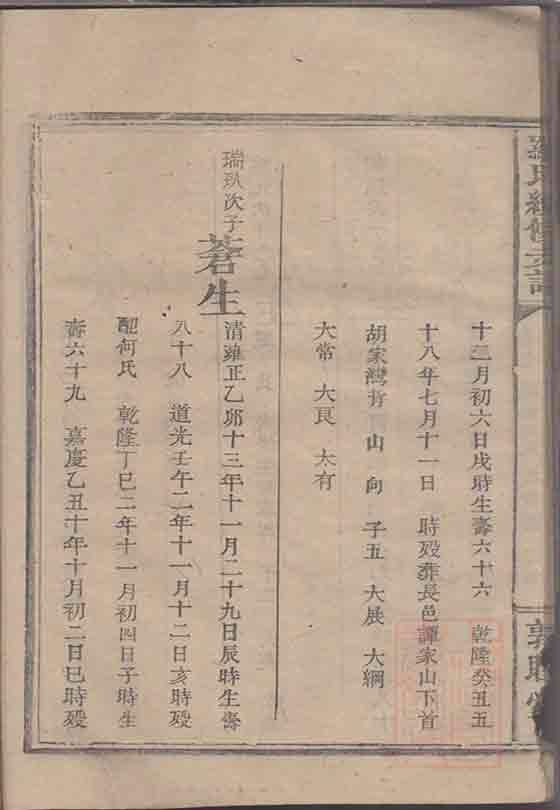 氏續修
十二月初六日戌時生壽六十六 乾隆癸丑五
十八年七月十一日 時歿葬長邑譚家山下首
胡家灣背 山 向 子五 大展 大綱
大常 大良 太有
瑞玖次子
蒼生
清雍正乙卯十三年十一月二十九日辰時生壽
八十八 道光壬午二年十一月十二日亥時歿
配何氏 乾隆丁巳二年十一月初四日子時生
壽六十九 嘉慶乙丑十年十月初二日巳時歿